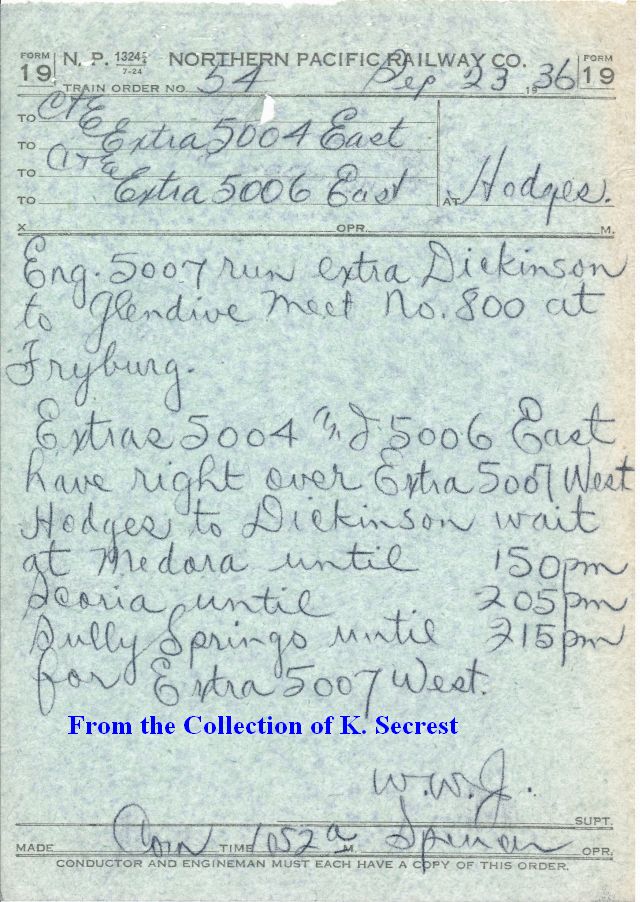 FORM 19 N. P. 1324½ 7-24 NORTHERN PACIFIC RAILWAY CO. FORM 19
TRAIN ORDER NO. 54 Sep 23 1936
TO C+E
TO Extra 5004 East
TO C+E
TO Extra 5006 East AT Hodges.
X OPR. M.
Eng. 5007 run extra Dickinson
to Glendive meet No. 800 at
Fryburg.
Extras 5004 and 5006 East
have right over Extra 5007 West
Hodges to Dickinson wait
at Medora until 150pm
Scoria until 205pm
Sully Springs until 215pm
for Extra 5007 West.
From the Collection of K. Secrest
W.W.J.
SUPT.
MADE Com TIME 1052a M. OPR.
CONDUCTOR AND ENGINEMAN MUST EACH HAVE A COPY OF THIS ORDER.